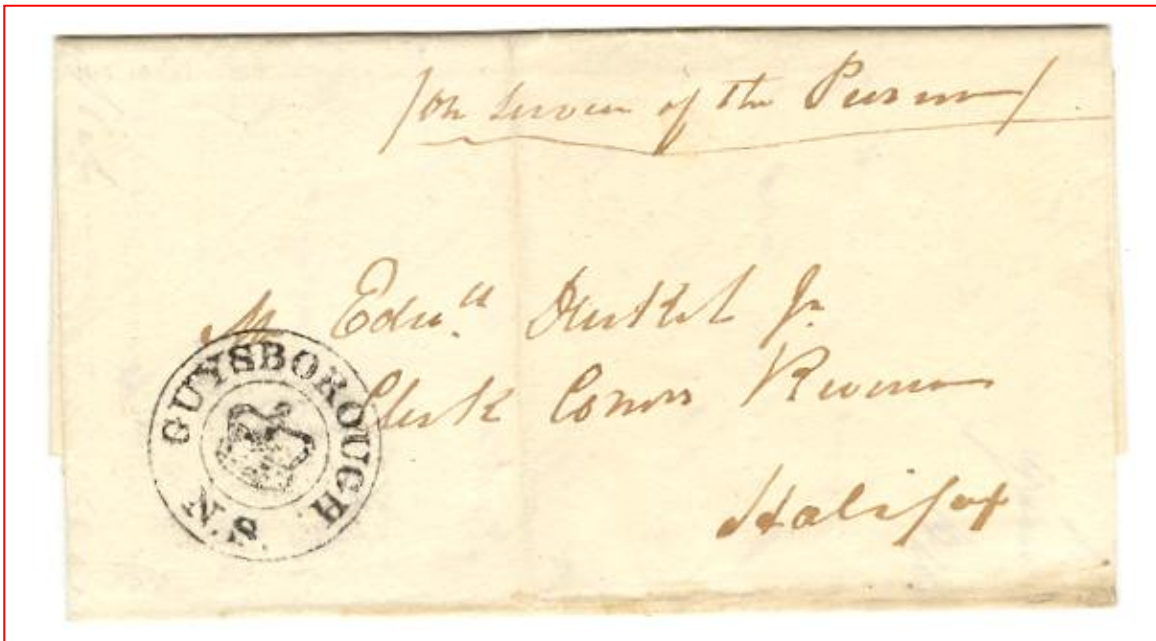 /On Service of the Revenue/
Mr Edwd Jr.
Clerk Comrs Revenue
Halifax
GUYSBOROUGH.
N.S.